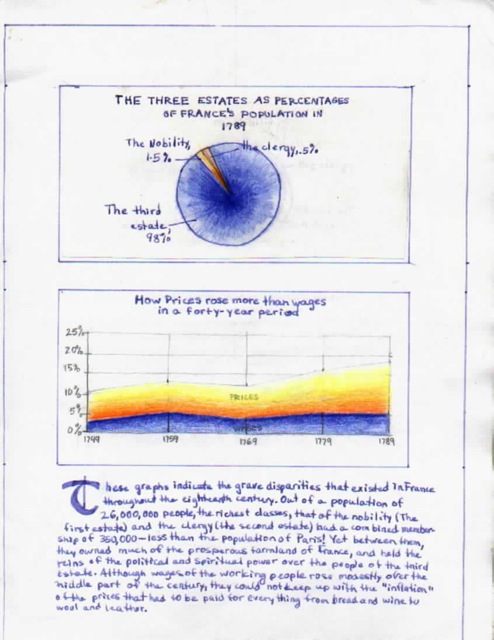 THE THREE ESTATES AS PERCENTAGES
OF FRANCE'S POPULATION IN
1789
The Nobility,
1.5%
the clergy, 1.5%
The third
estate,
98%
How Prices rose more than wages
in a forty-year period
25%
20%
15%
10%
5%
0%
PRICES
WAGES
1749
1759
1769
1779
1789
These graphs indicate the grave disparities that existed in France
throughout the eighteenth century. Out of a population of
26,000,000 people, the richest classes, that of the nobility (The
first estate) and the clergy (the second estate) had a combined member-
ship of 350,000-less than the population of Paris! Yet between them,
they owned much of the prosperous farmland of France, and held the
reins of the political and spiritual power over the people of the third
estate. Although wages of the working people rose modestly over the
middle part of the century, they could not keep up with the "inflation"
of the prices that had to be paid for everything from bread and wine to
wool and leather.